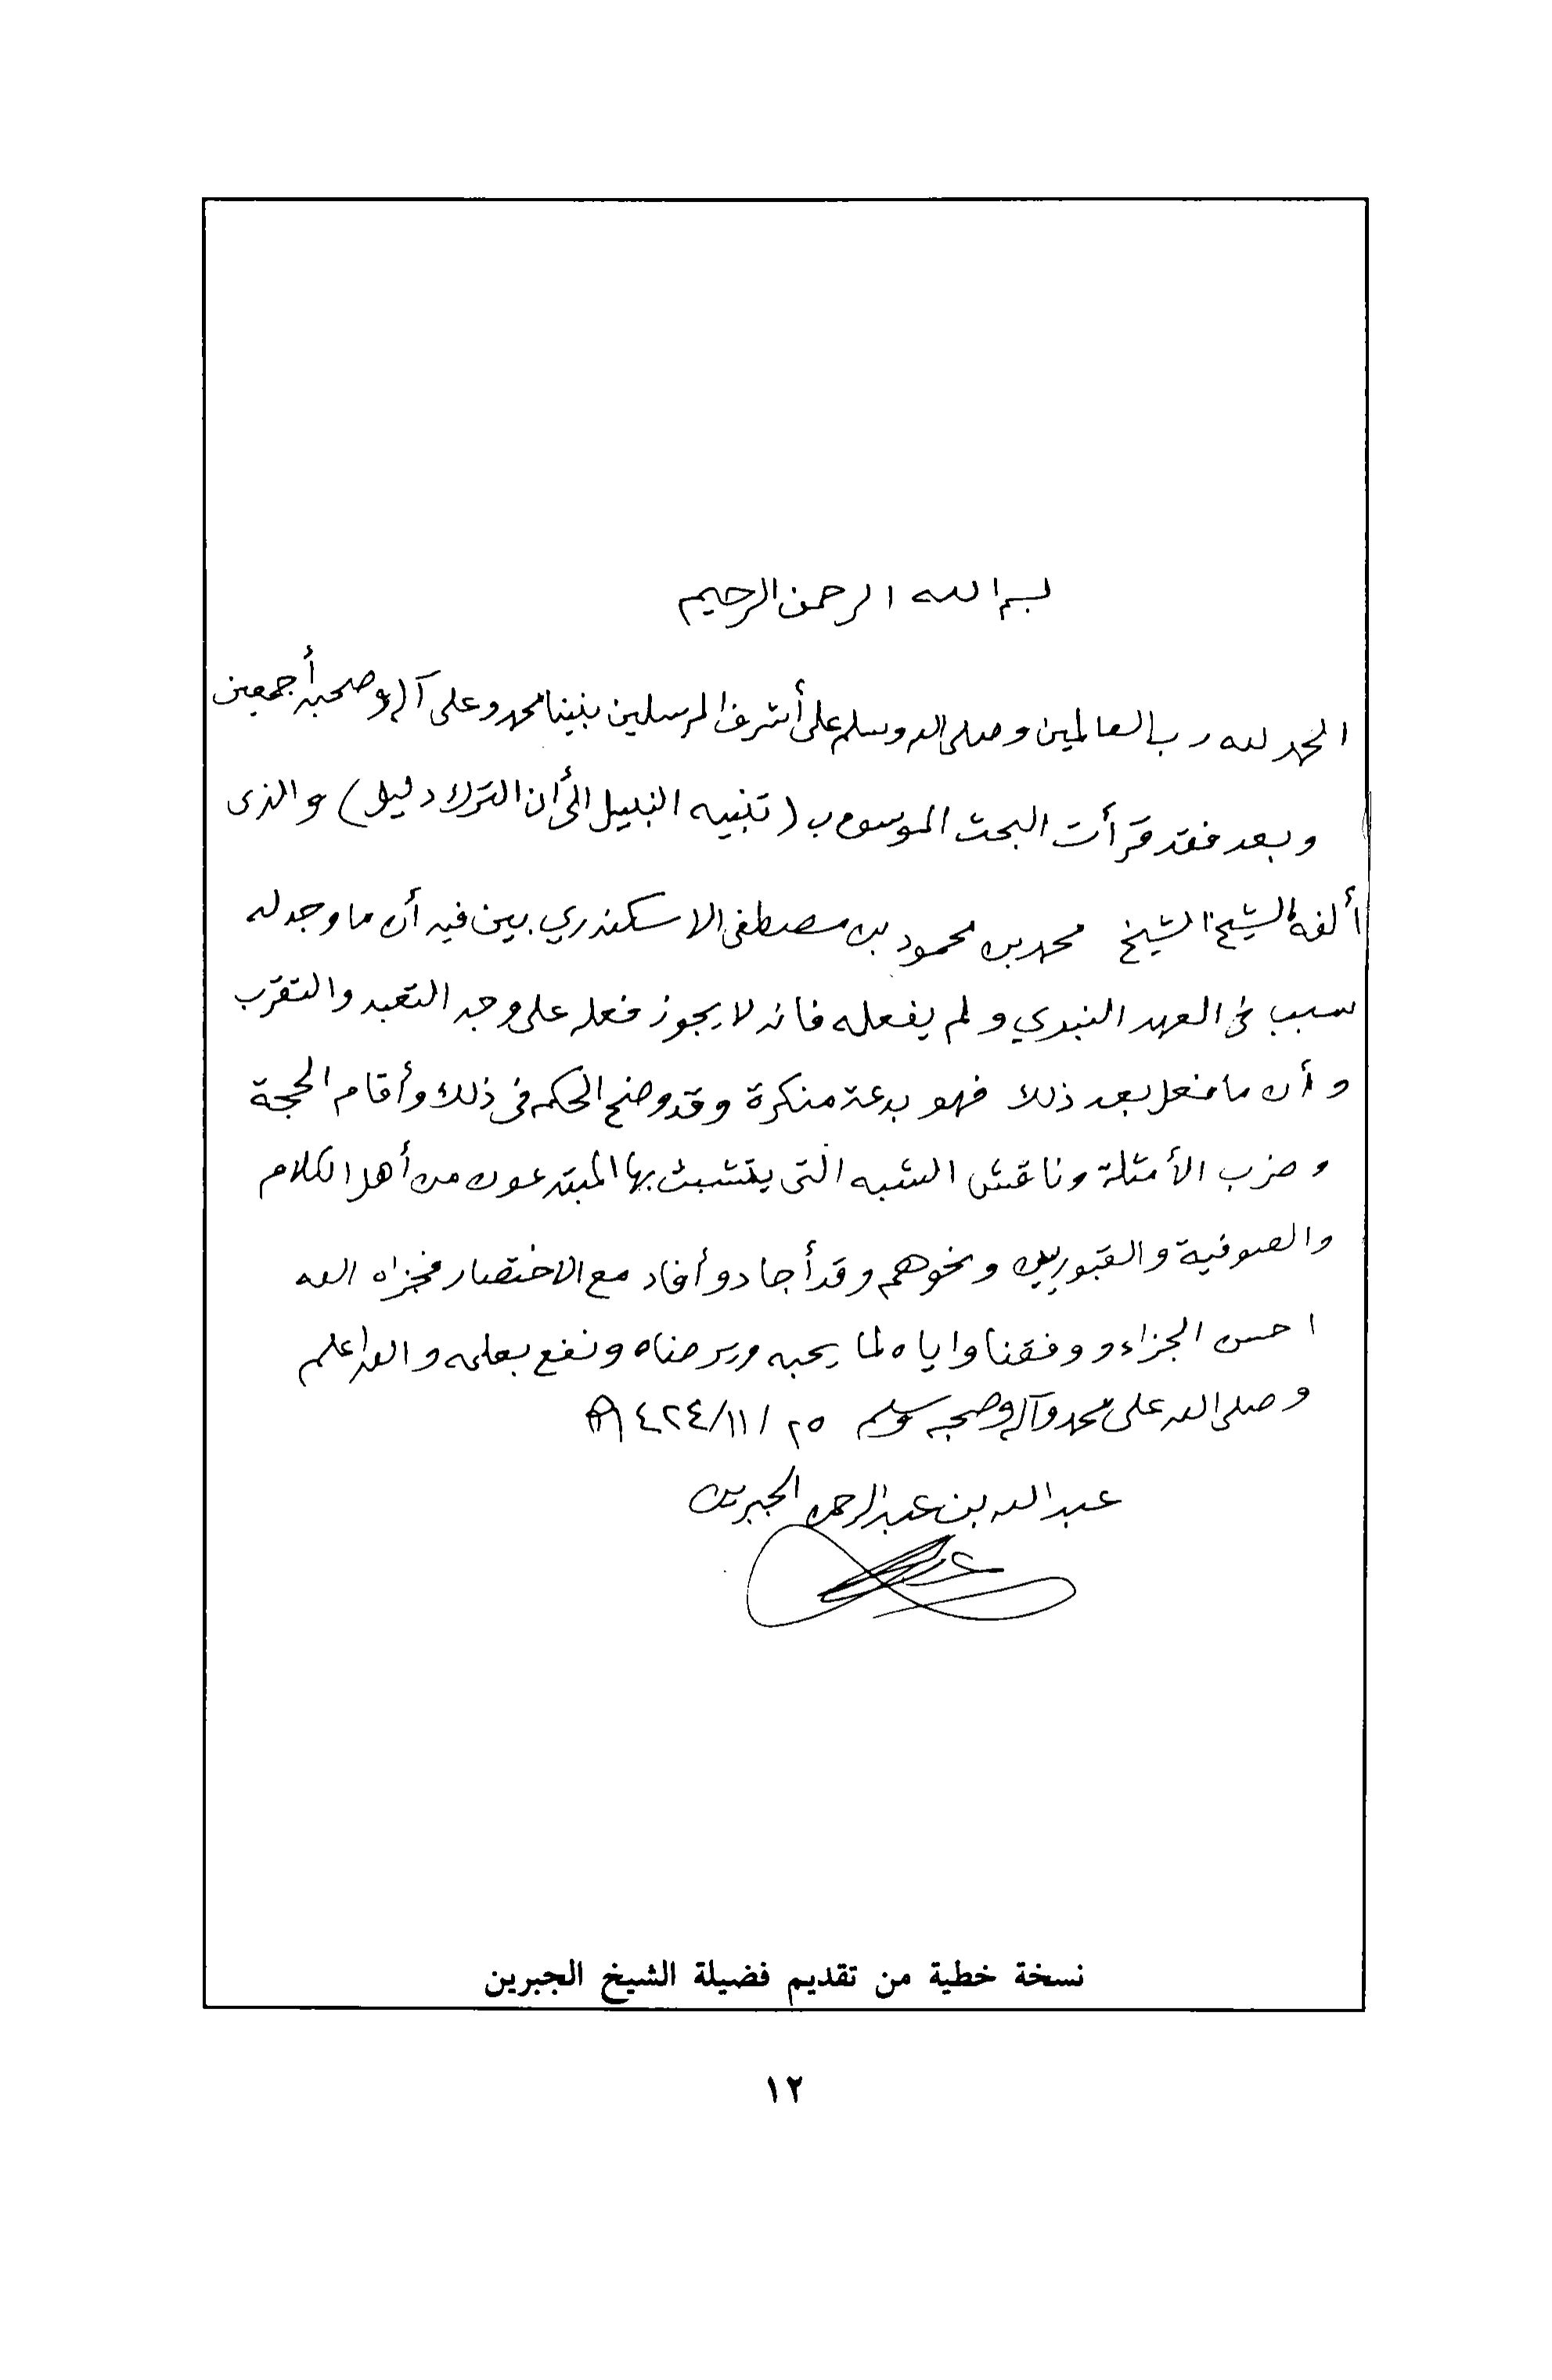 بسم الله الرحمن الرحيم
الحمد لله رب العالمين وصلى الله وسلم على أشرف المرسلين نبينا محمد وعلى آله وصحبه أجمعين
وبعد فقد قرأت البحث الموسوم ب (تنبيه النبيل الى أن الترك دليل) والذى
ألفه الشيخ الشيخ محمد بن محمود بن مصطفى الاسكندري بين فيه أن ما وجد له
سبب في العهد النبوي ولم يفعله فانه لا يجوز فعله على وجه التعبد والتقرب
وأن ما فعل بعد ذلك فهو بدعة منكرة وقد وضح الحكم في ذلك وأقام الحجة
وضرب الأمثلة وناقش الشبه التى يتشبث بها المبتدعون من أهل الكلام
والصوفية والقبوريين ونحوهم وقد أجاد وأفاد مع الاختصار فجزاه الله
احسن الجزاء ووفقنا واياه لما يحبه ويرضاه ونفع بعلمه والله اعلم
وصلى الله على محمد وآله وصحبه وسلم ٢٥ /١١/ ١٤٢٤ه
عبد الله بن عبد الرحمن الجبرين
نسخة خطية من تقديم فضيلة الشيخ الجبرين
١٢